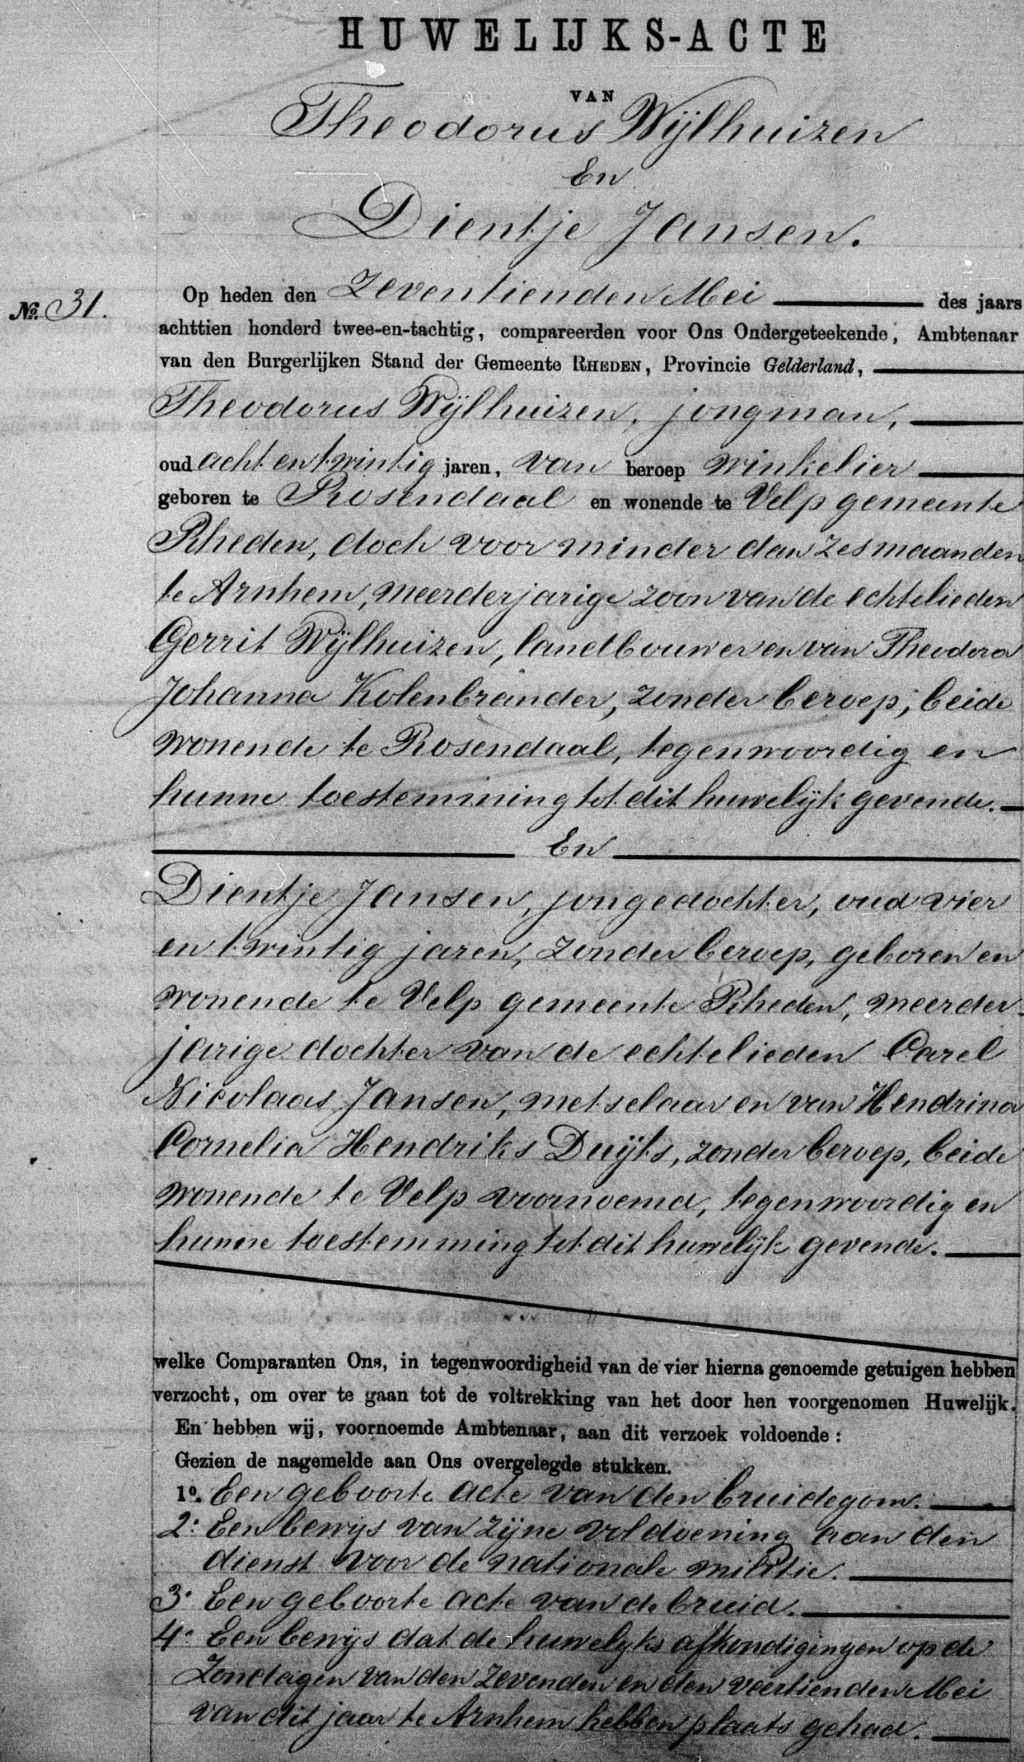 HUWELIJKS-ACTE
VAN
Theodorus Wijlhuizen
En
Dientje Jansen.
No. 31. Op heden den Zeventienden Mei des jaars
achttien honderd twee-en-tachtig, compareerden voor Ons Ondergeteekende, Ambtenaar
van den Burgerlijken Stand der Gemeente RHEDEN, Provincie Gelderland,
Theodorus Wijlhuizen, jongman,
oud acht en twintig jaren, van beroep winkelier
geboren te Rosendaal en wonende te Velp gemeente
Rheden, doch voor minder dan zes maanden
te Arnhem, meerderjarige zoon van de echtelieden
Gerrit Wijlhuizen, landbouwer en van Theodora
Johanna Kolenbrander, zonder beroep, beide
wonende te Rosendaal, tegenwoordig en
hunne toestemming tot dit huwelijk gevende.
En
Dientje Jansen, jongedochter, oud vier
en twintig jaren, zonder beroep, geboren en
wonende te Velp gemeente Rheden, meerder-
jarige dochter van de echtelieden Carel
Nicolaas Jansen, metselaar en van Hendrina
Cornelia Hendriks Duijts, zonder beroep, beide
wonende te Velp voornoemd, tegenwoordig en
hunne toestemming tot dit huwelijk gevende.
welke Comparanten Ons, in tegenwoordigheid van de vier hierna genoemde getuigen hebben
verzocht, om over te gaan tot de voltrekking van het door hen voorgenomen Huwelijk.
En hebben wij, voornoemde Ambtenaar, aan dit verzoek voldoende:
Gezien de nagemelde aan Ons overgelegde stukken.
1o. Een geboorte acte van den bruidegom.
2o Een bewijs van zijne voldoening aan den
dienst voor de nationale militie.
3o Een geboorte acte van de bruid.
4o Een bewijs dat de huwelijks afkondigingen op de
Zondagen van den zevenden en den veertienden Mei
van dit jaar te Arnhem hebben plaats gehad.